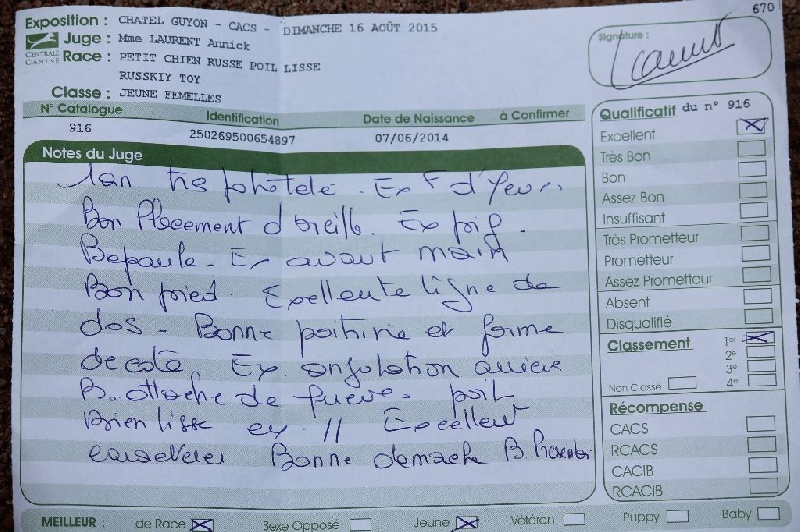 670
Exposition : CHATEL GUYON - CACS - DIMANCHE 16 AOÛT 2015
Juge : Mme LAURENT Annick
CENTRALE CANINE
Race : PETIT CHIEN RUSSE POIL LISSE
RUSSKIY TOY
Classe : JEUNE FEMELLES
Signature :
N° Catalogue Identification Date de Naissance à Confirmer
916 250269500654897 07/06/2014
Notes du Juge
1an très tête. Ex F d'yeux
Bon Placement d'oreille. Ex pig.
B epaule. Ex avant main
Bon pied. Exellente ligne de
dos - Bonne poitrine et forme
de coté. Ex angulation arriere
B. attache de poil
Bien lisse ex // Excellent
caractere Bonne demarche B
Qualificatif du n° 916
Excellent
Très Bon
Bon
Assez Bon
Insuffisant
Très Prometteur
Prometteur
Assez Prometteur
Absent
Disqualifié
Classement 1er
2e
3e
Non Classé 4e
Récompense
CACS
RCACS
CACIB
RCACIB
MEILLEUR : de Race Sexe Opposé Jeune Vétéran Puppy Baby